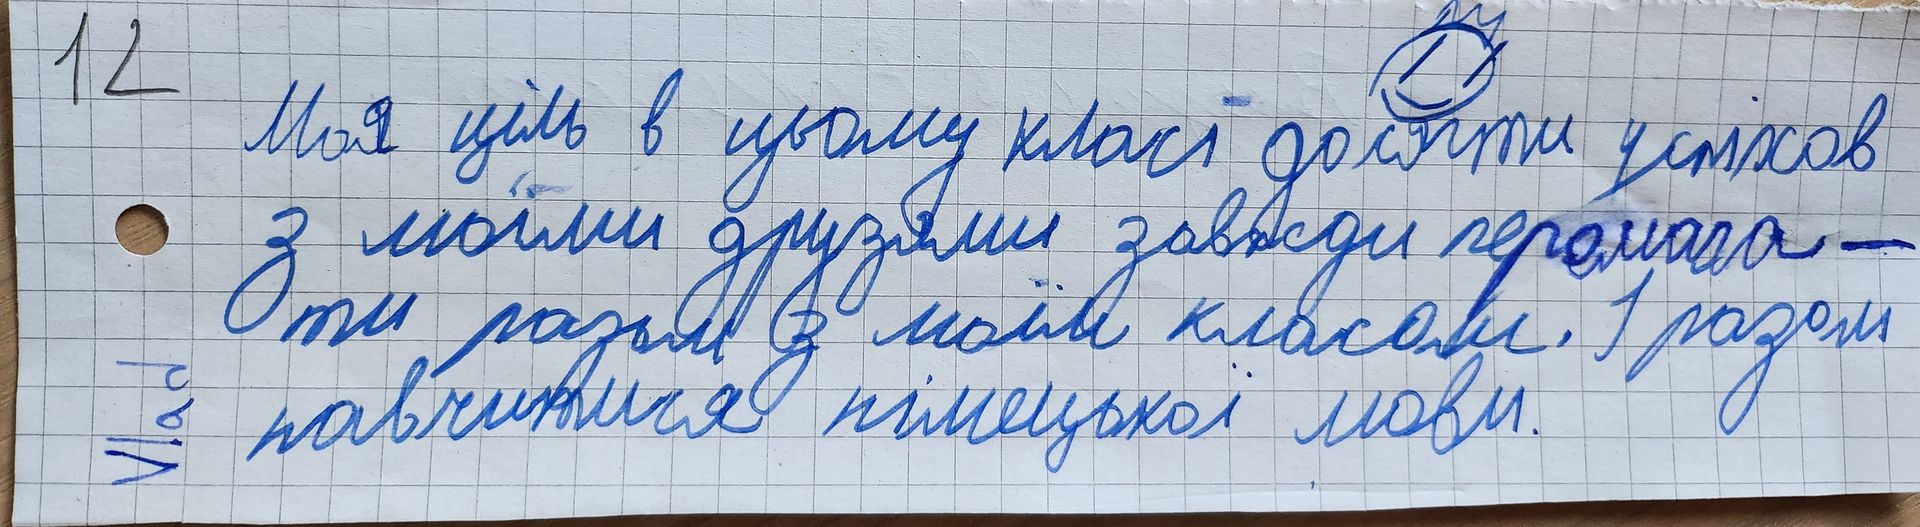 12
Моя ціль в цьому класі досягти успіхов
з моїми друзями завжди перемага-
ти разом з моїм класом. І разом
навчитися німецької мови.
Vlad